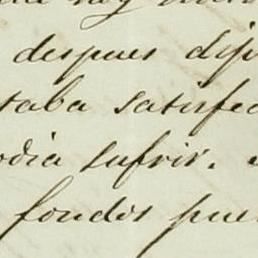 despues dij
taba satisfec
odia sufrir.
fondos pue